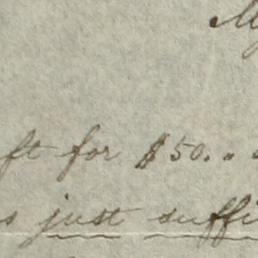 My
ft for $50. "
s just suffi